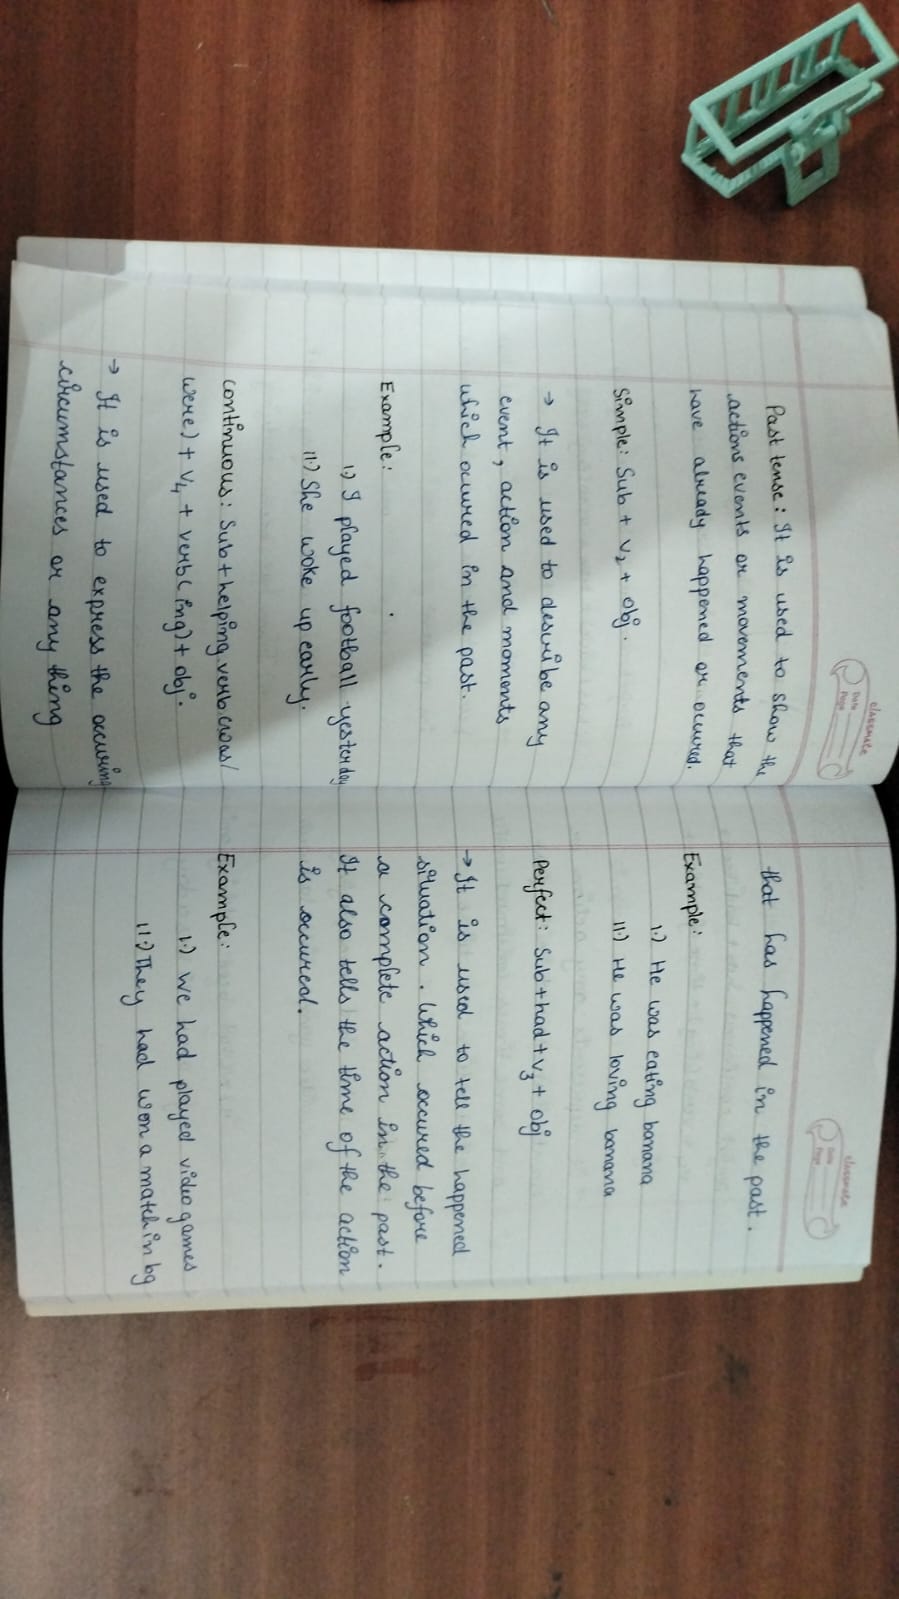 classmate
Date
Page
Past tense: It is used to show the
actions events or movements that
have already happened or occured.
Simple: Sub + V2 + Obj.
→ It is used to describe any
event, action and moments
which occured in the past.
Example:
I.) I played football yesterday
II.) She woke up early.
Continuous: Sub + helping verb (was/
were) + V4 + verb(ing) + obj.
→ It is used to express the occuring
circumstances or any thing
classmate
Date
Page
that has happened in the past.
Example:
I.) He was eating banana
II.) He was loving banana
Perfect: Sub + had + V3 + Obj
→ It is used to tell the happened
situation. Which occured before
a complete action in the past.
It also tells the time of the action
is occured.
Example:
I.) We had played video games
II.) They had won a match in bg